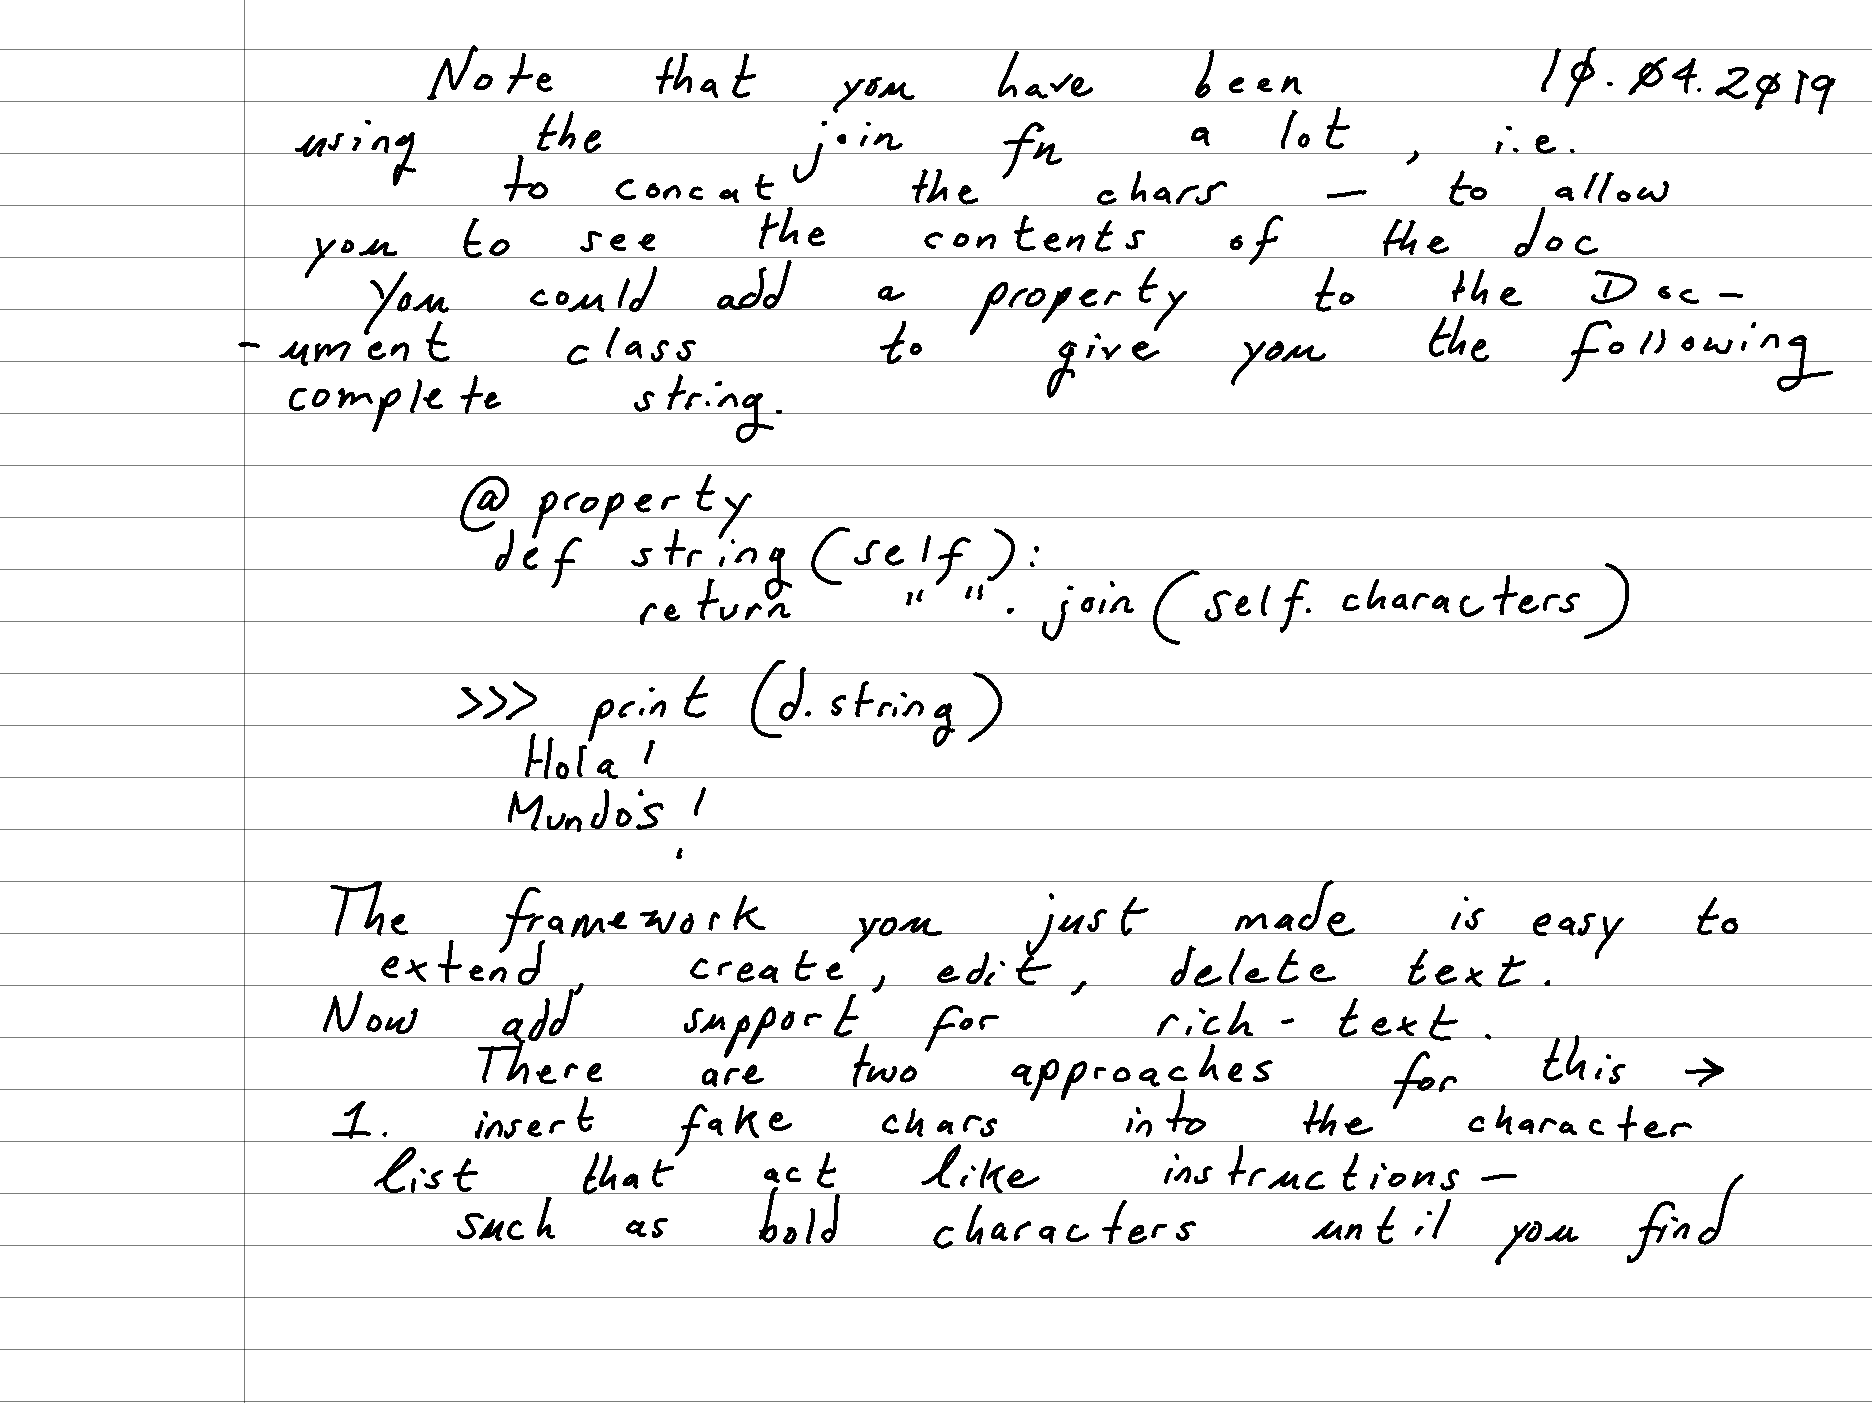 Note that you have been 10.04.2019
using the join fn a lot, i.e.
to concat the chars – to allow
you to see the contents of the doc
You could add a property to the Doc-
-ument class to give you the following
complete string.
@property
def string(self):
return " ".join(self.characters)
>>> print(d.string)
Hola!
Mundo's!
The framework you just made is easy to
extend, create, edit, delete text.
Now add support for rich-text.
There are two approaches for this →
1. insert fake chars into the character
list that act like instructions –
such as bold characters until you find